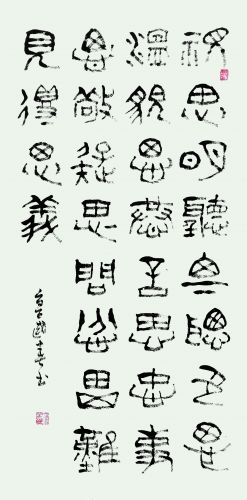 視思明聽思聰色思
溫貌思恭言思忠事
思敬疑思問忿思難
見得思義
書